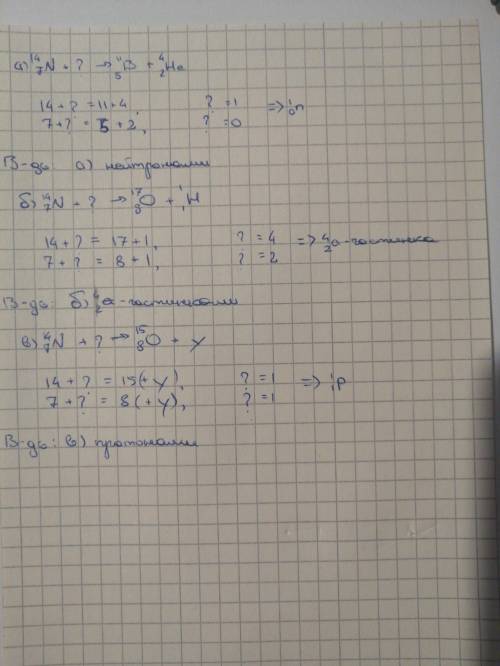 а) ¹⁴₇N + ? → ¹¹₅B + ⁴₂He
14 + ? = 11 + 4 ? = 1 => ¹₀n
7 + ? = 5 + 2, ? = 0
В-дь: а) нейтронами
б) ¹⁴₇N + ? → ¹⁷₈O + ¹₁H
14 + ? = 17 + 1, ? = 4 => ⁴₂α-частинка
7 + ? = 8 + 1, ? = 2
В-дь: б) ⁴₂α-частинками
в) ¹⁴₇N + ? → ¹⁵₈O + γ
14 + ? = 15(+ γ), ? = 1 => ¹₁p
7 + ? = 8 (+ γ), ? = 1
В-дь: в) протонами